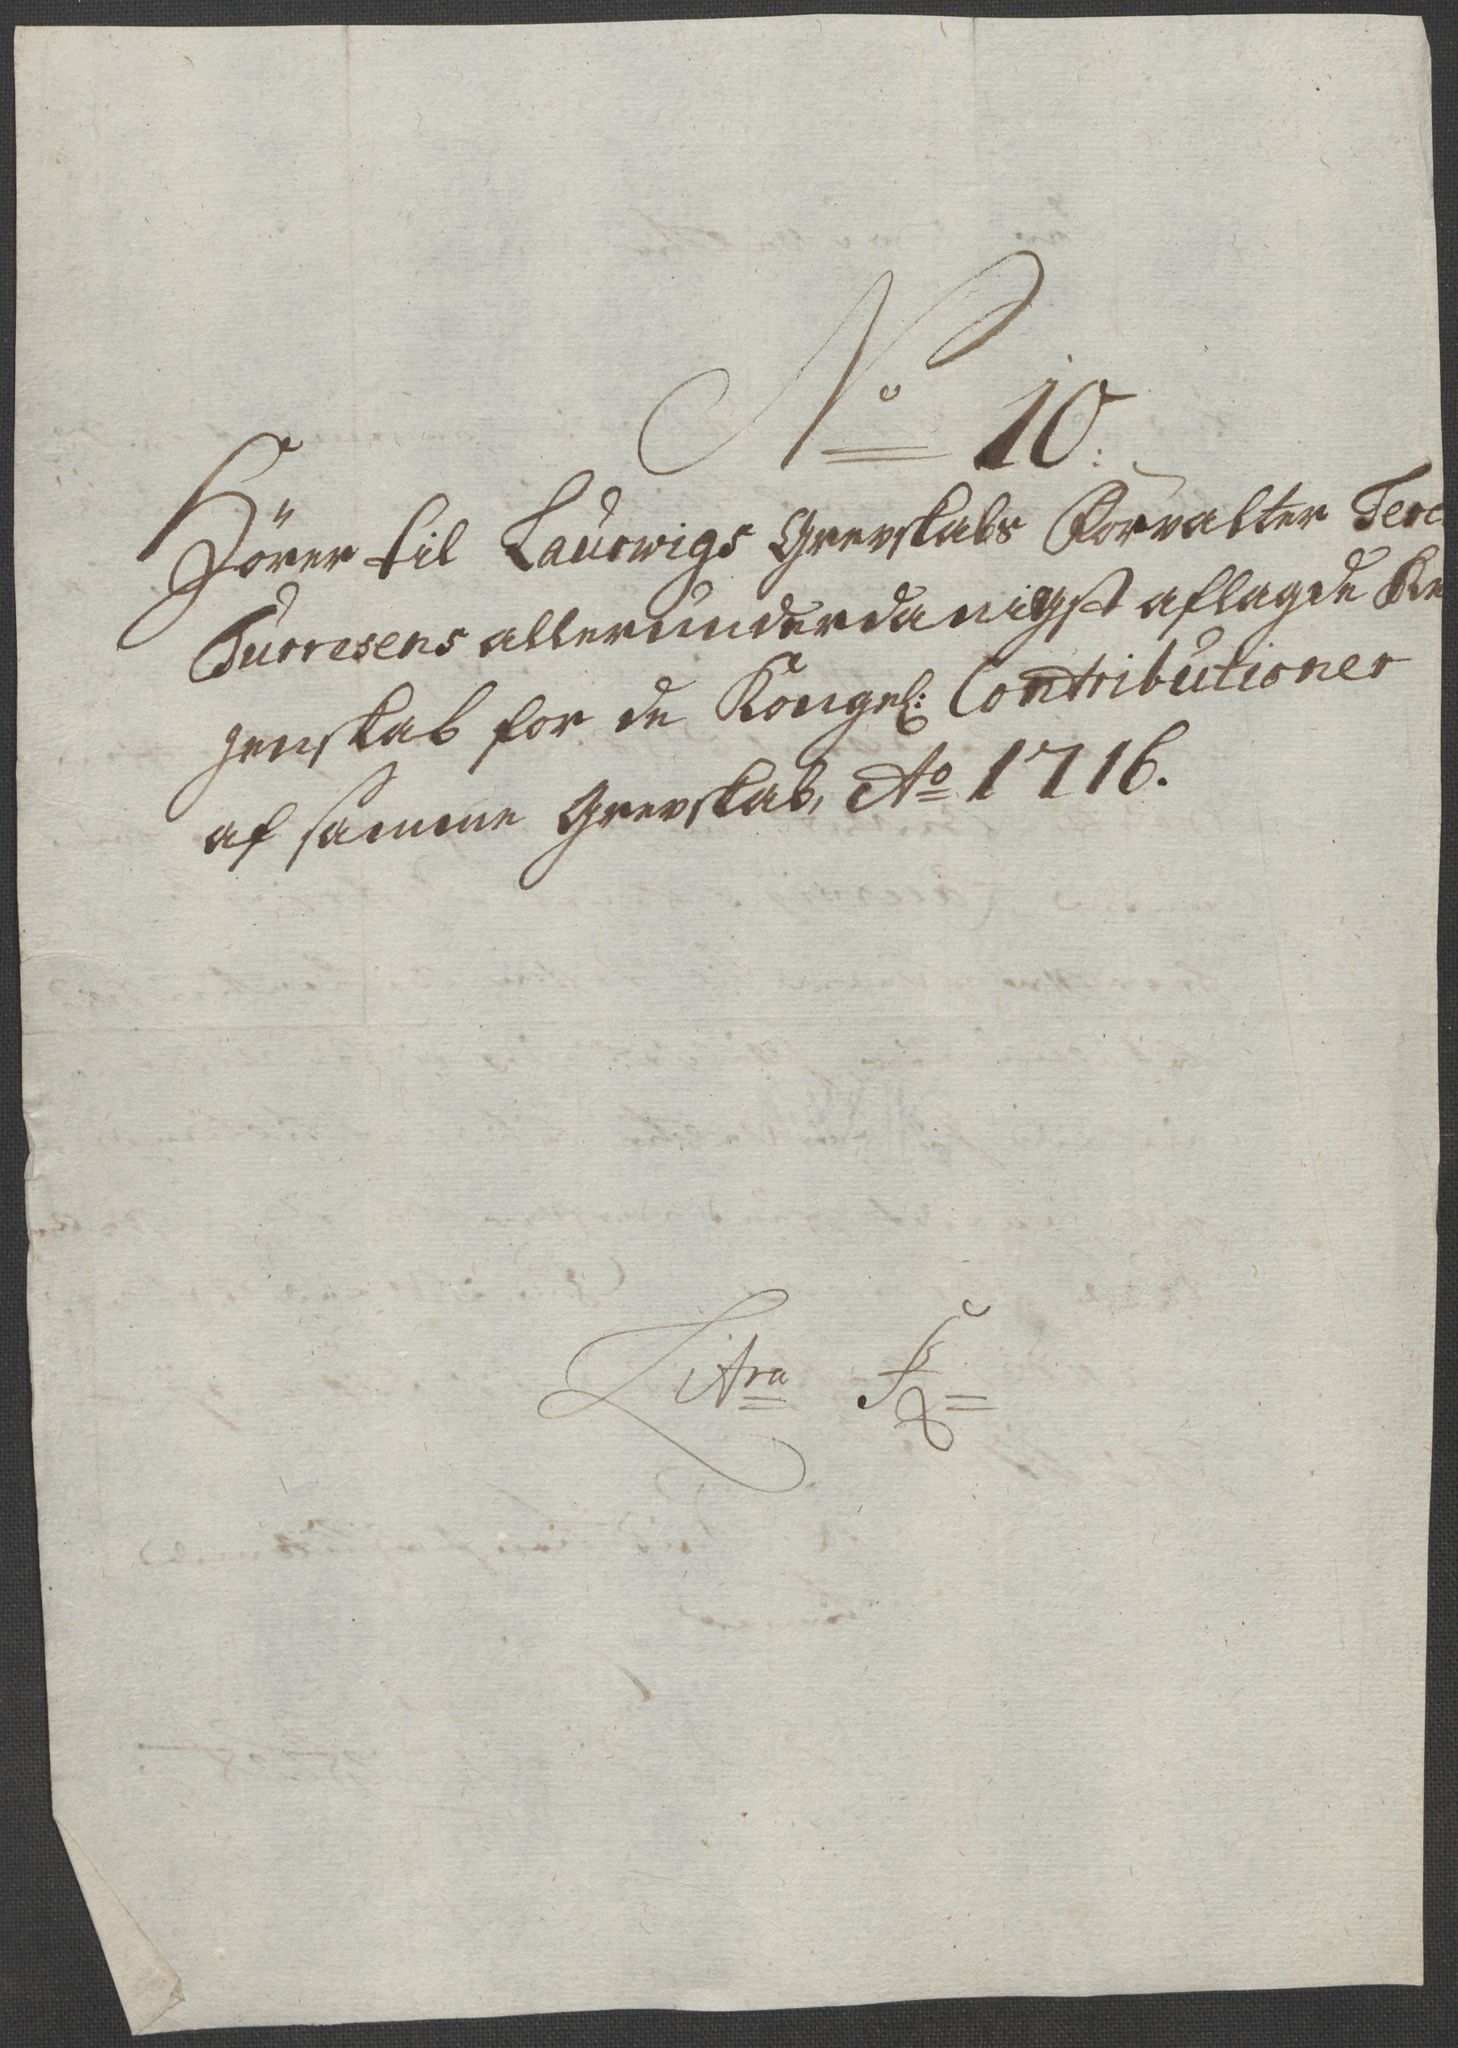 No 10.
Hörer til Laurwigs Grevskabs Forvalter
Turresens allerunderdanigst aflagde Re
genskab for de Kongel: Contributioner
af samme Grevskab, Ao 1716.
Litra F